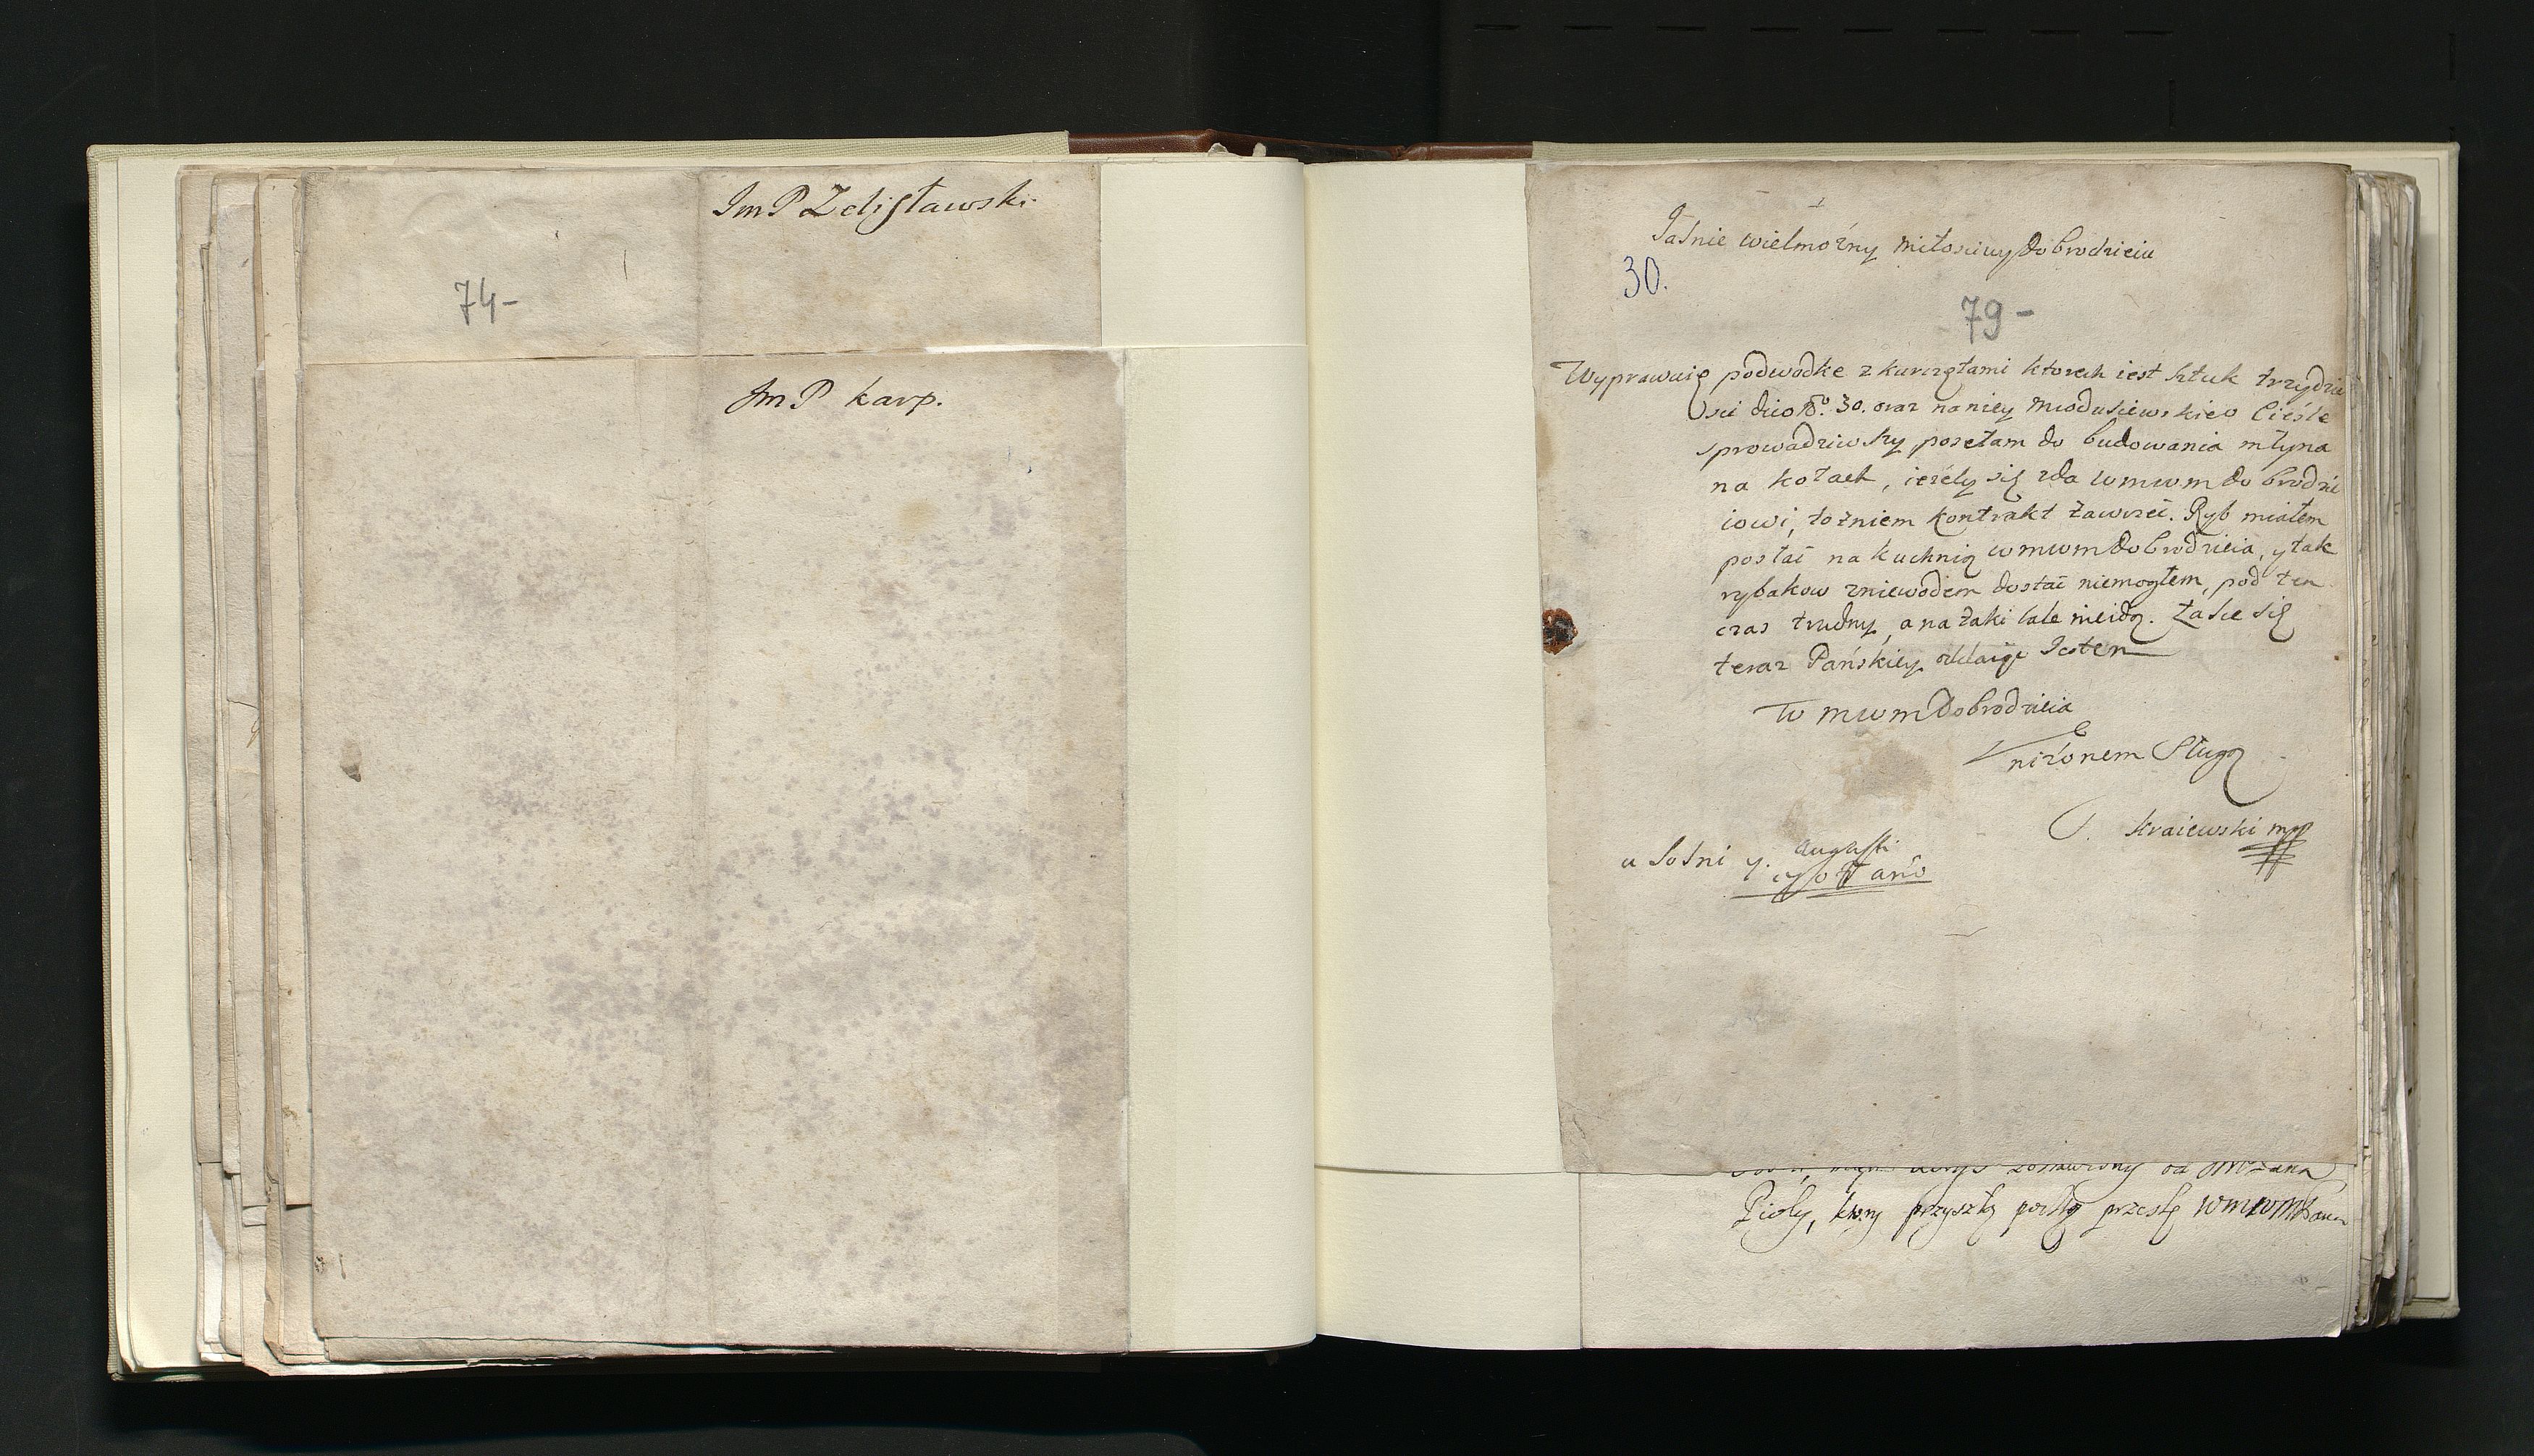 ImP Zdisławski
74-
Jm P karp.
Jaśnie wielmożny miłosciwy Dobrodzieiu
30.
79-
Wyprawuię podwodke z kurczętami ktorech iest sztuk trzydzie
sci dico No. 30. oraz naniey Cieśle
sprowadziwszy posełam do budowania młyna
na kołach, ieżely się zda wmwm dobrodzie
iowi, to zniem kontrakt zawrzeć. Ryb miałem
posłać na kuchnią wmwm Dobrodzieia, y tak
rybakow zniewodem dostać niemogłem, pod ten
czas trudny, a na żaki cale nieidą. Łasce się
teraz Pańskiey oddaię Jestem
W mwm Dobrodzieia
niżonem Sługą
Kraiewski mp
u Sośni y. Augusti
anno
zostawiony od
ktory przyszłą pocztą przeslę wmwm Panu